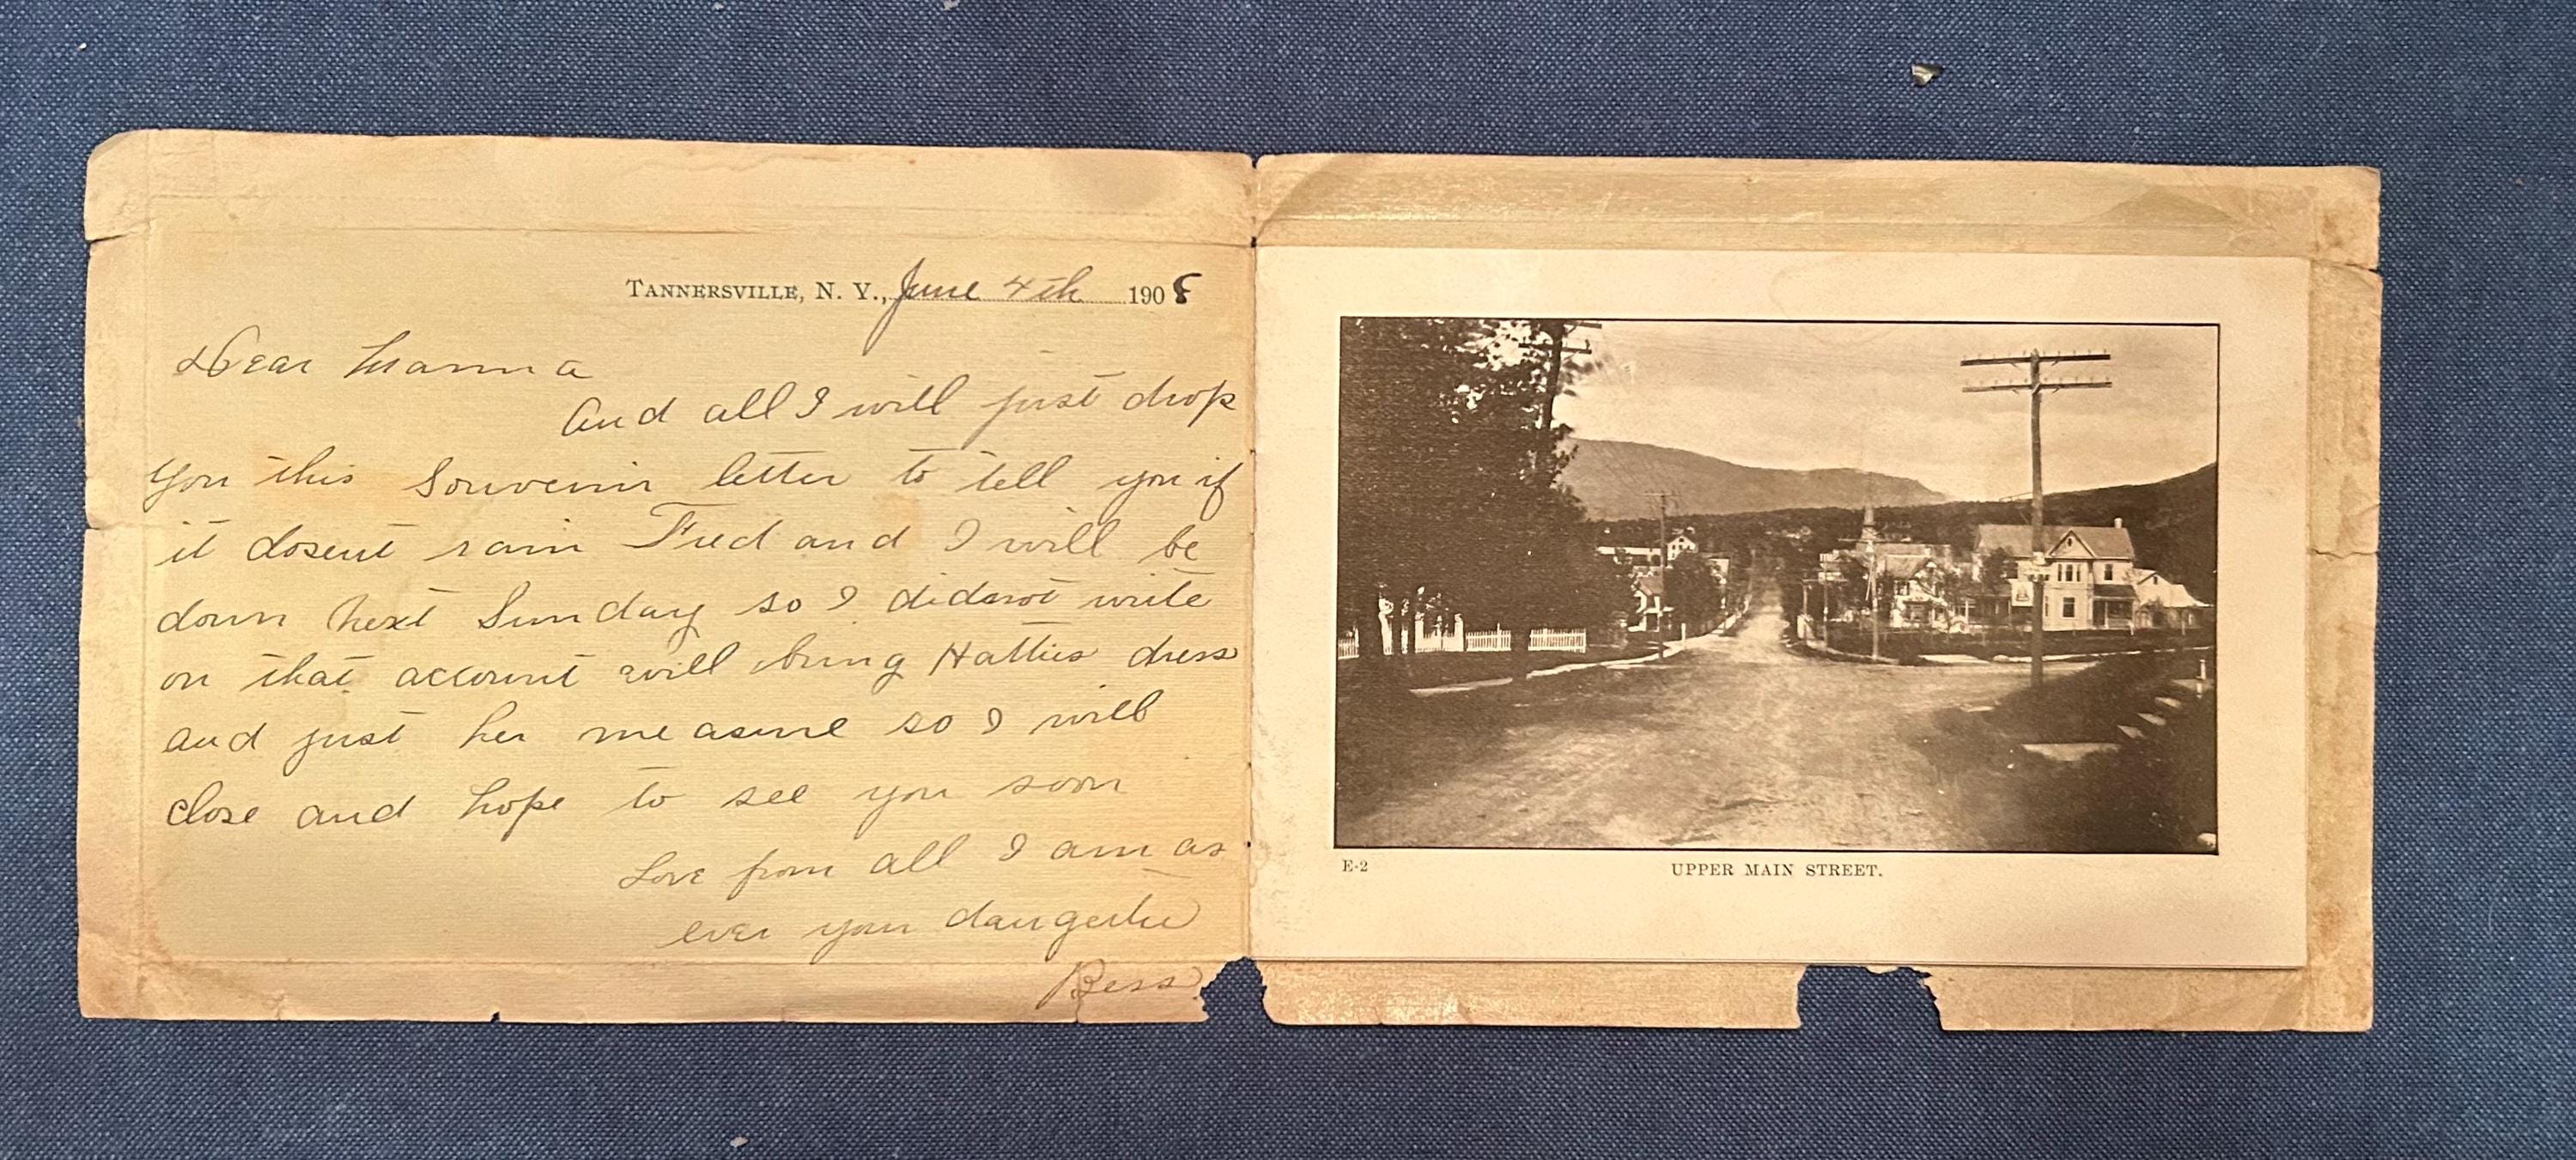 TANNERSVILLE, N. Y., June 4th 1908
Dear Mamma
and all I will just drop
you this Souvenir letter to tell you if
it dosent rain Fred and I will be
down next Sunday so I didnot write
on that account will bring Hatties dress
and just her measure so I will
close and hope to see you soon
Love from all I am as
ever your daugerter
Bess
E-2 UPPER MAIN STREET.